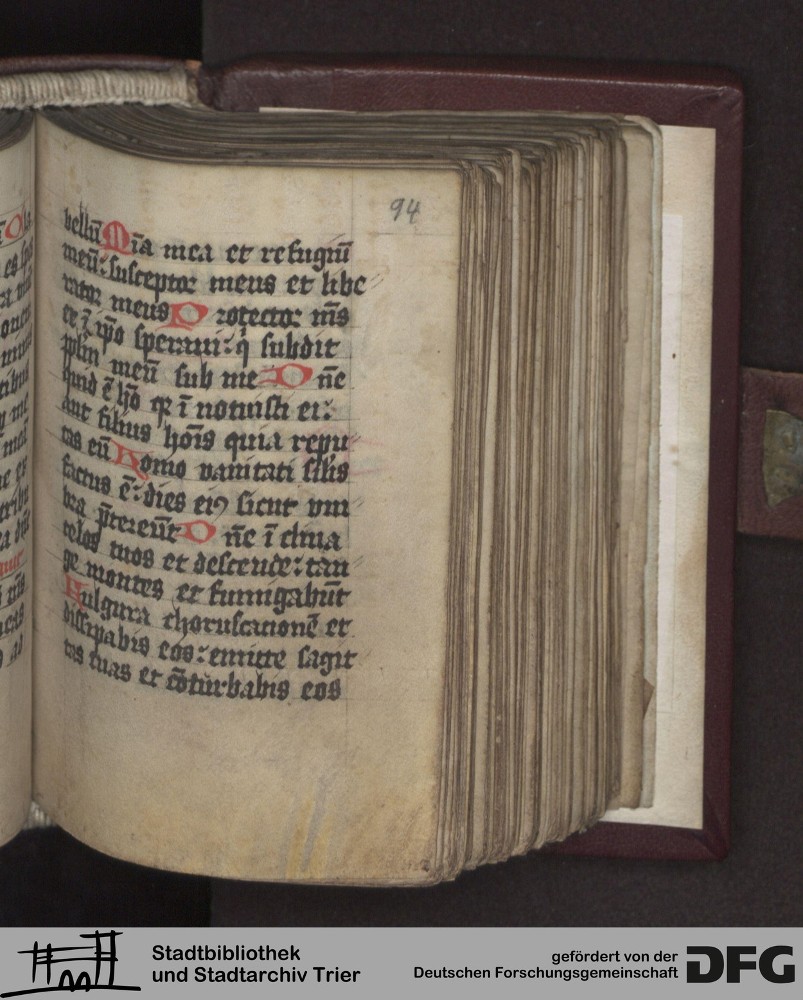 94
bellū Mīa mea et refugiū
meū: susceptor meus et libe
rator meus Protector m̄s
et ī ip̄o speraui: q̄ subdit
pl̄m meū sub me Dn̄e
quid ē hō qr ī notuisti ei:
aut filius hoīs quia repu
tas eū Homo vanitati sil̄is
factus ē: dies eiꝰ sicut vm
bra p̄tereūt Dn̄e īclina
celos tuos et descende: tan
ge montes et fumigabūt
Fulgura choruscationē et
dissipabis eos: emitte sagit
tas tuas et cōturbabis eos
Stadtbibliothek
und Stadtarchiv Trier
gefördert von der
Deutschen Forschungsgemeinschaft
DFG